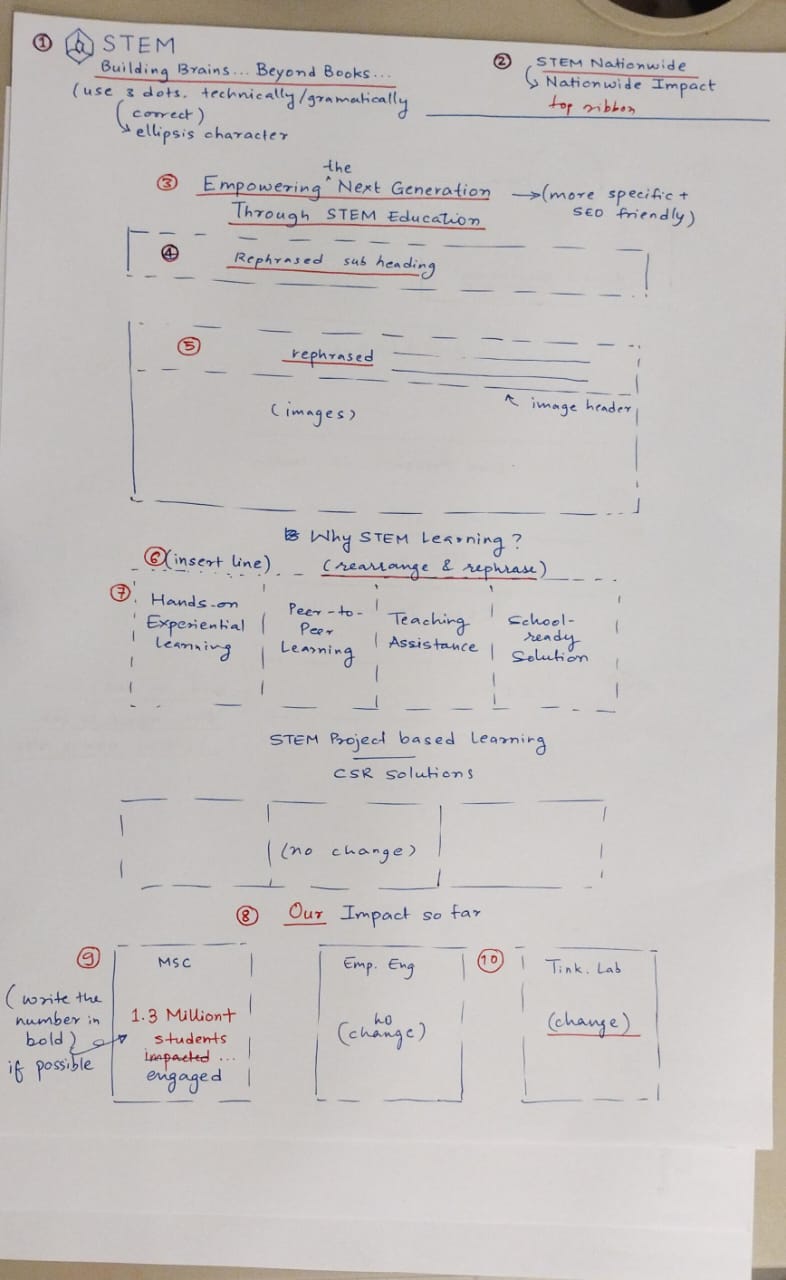 ① STEM
Building Brains... Beyond Books...
(use 3 dots. technically/gramatically
correct)
↳ ellipsis character
② STEM Nationwide
↳ Nationwide Impact
top ribbon
the
③ Empowering ^ Next Generation → (more specific +
Through STEM Education SEO friendly)
④ Rephrased sub heading
⑤ rephrased
↖ image header
(images)
Why STEM Learning?
⑥ (insert line) (rearrange & rephrase)
⑦ Hands-on
Experiential
Learning
Peer-to-
Peer
Learning
Teaching
Assistance
School-
ready
Solution
STEM Project based Learning
CSR Solutions
(no change)
⑧ Our Impact so far
⑨ MSC
(write the
number in
bold)
if possible
1.3 Million+
students
impacted ...
engaged
Emp. Eng
no
(change)
⑩ Tink. Lab
(change)